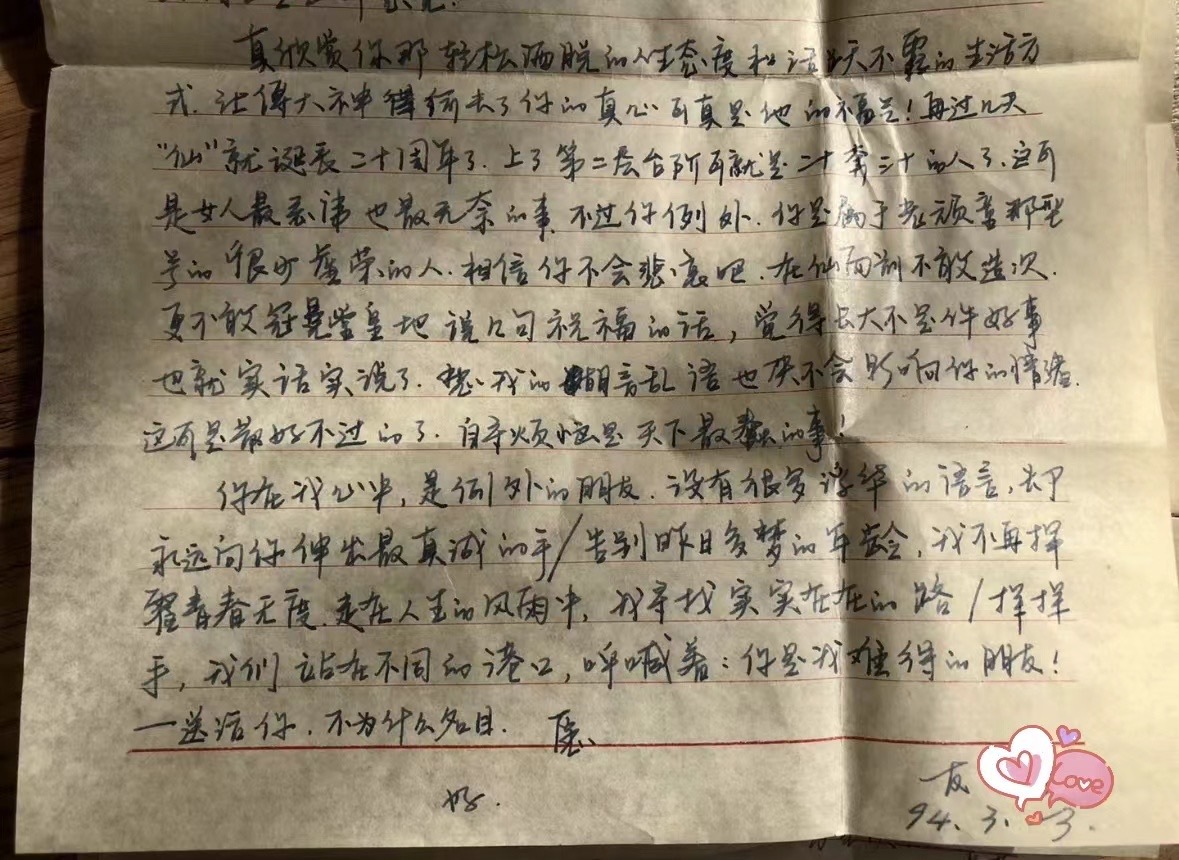 真欣赏你那轻松洒脱的人生态度和话天不露的生活方
式.让傅大神得领去了你的真心可真是他的福分!再过几天
“仙”就诞辰二十周年了.上了第二层台阶可就是二十奔三十的人了.这可
是女人最忌讳也最无奈的事.不过你例外.你是属于老顽童那型
号的很少虚荣的人.相信你不会悲哀吧.在仙面前不敢造次.
更不敢冠冕堂皇地说几句祝福的话,觉得长大不是件好事
也就实话实说了.想我的胡言乱语也决不会影响你的情绪.
这可是最好不过的了.自寻烦恼是天下最蠢的事!
你在我心中,是例外的朋友.没有很多浮华的语言,却
永远向你伸出最真诚的手/告别昨日多梦的年龄,我不再挥
霍青春无度.走在人生的风雨中,我寻找实实在在的路/挥挥
手,我们站在不同的港口,呼喊着:你是我难得的朋友!
—送给你.不为什么名目.愿
好.
友
94.3.3.
Love